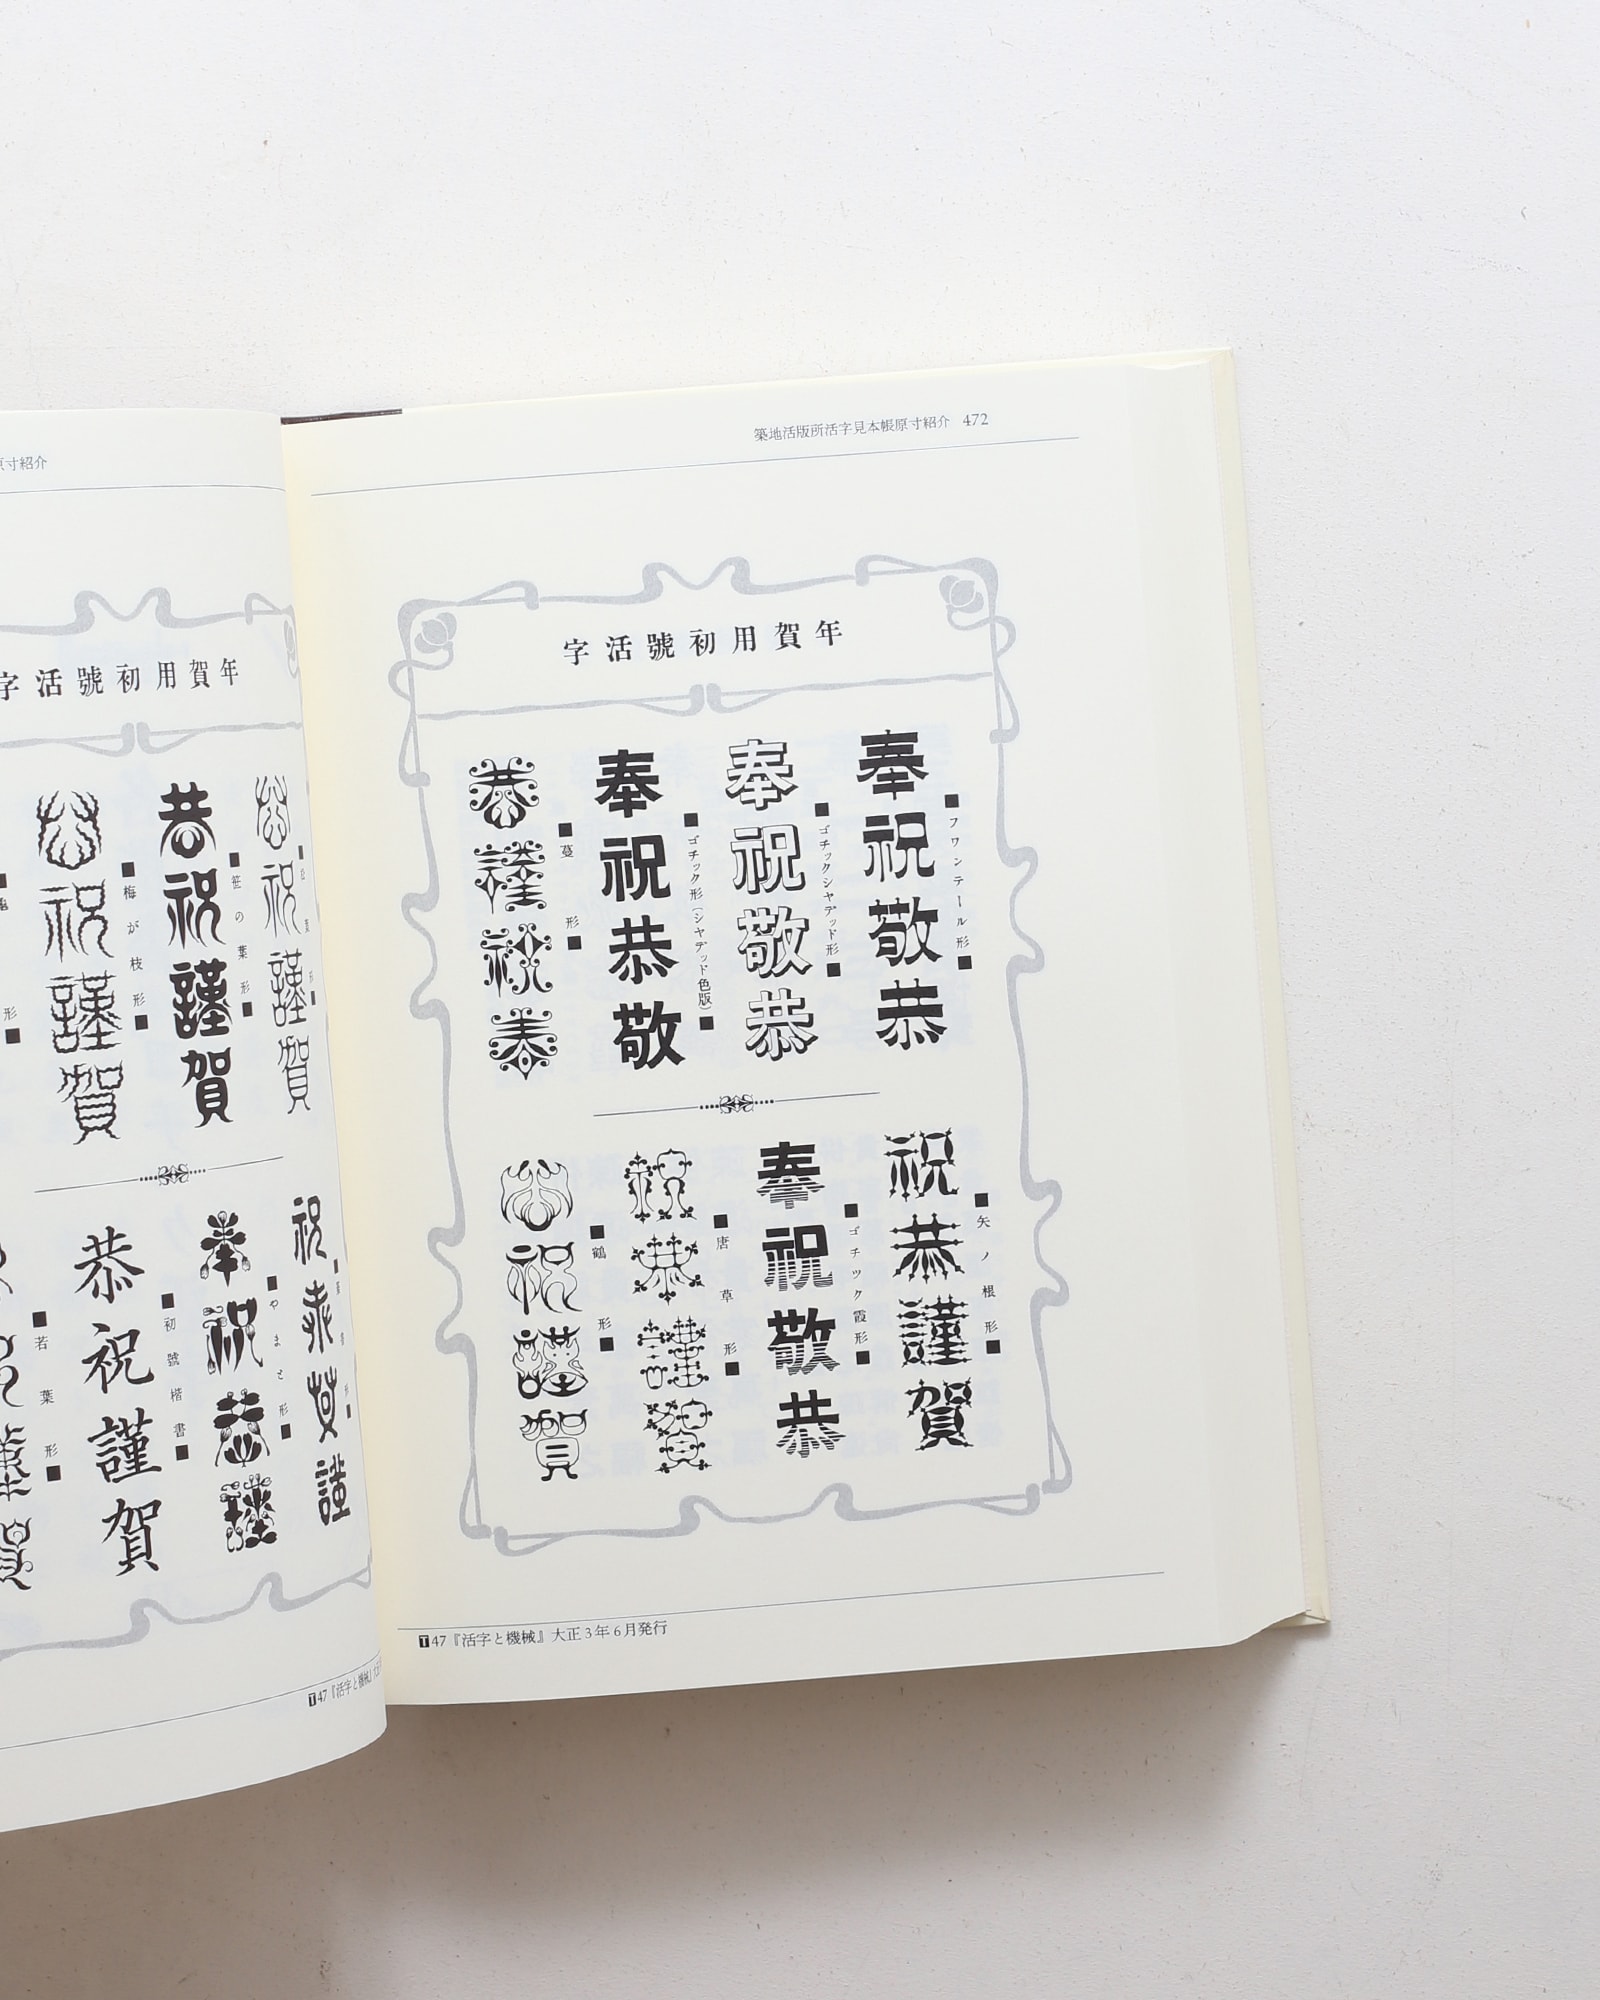 原寸紹介
字活號初用賀年
松
葉
形
恭祝謹賀
笹の葉形
恭祝謹賀
梅が枝形
恭祝謹賀
形
祝恭賀謹
やまと形
奉祝恭謹
初號楷書
恭祝謹賀
若葉形
築地活版所活字見本帳原寸紹介 472
字活號初用賀年
フワンテール形
奉祝敬恭
ゴチックシヤデッド形
奉祝敬恭
ゴチック形(シヤデッド色版)
奉祝恭敬
蔓形
恭謹祝奉
矢ノ根形
祝恭謹賀
ゴチック霞形
奉祝敬恭
唐草形
祝恭謹賀
鶴形
恭祝謹賀
T47『活字と機械』大正3年6月発行
T47『活字と機械』大正